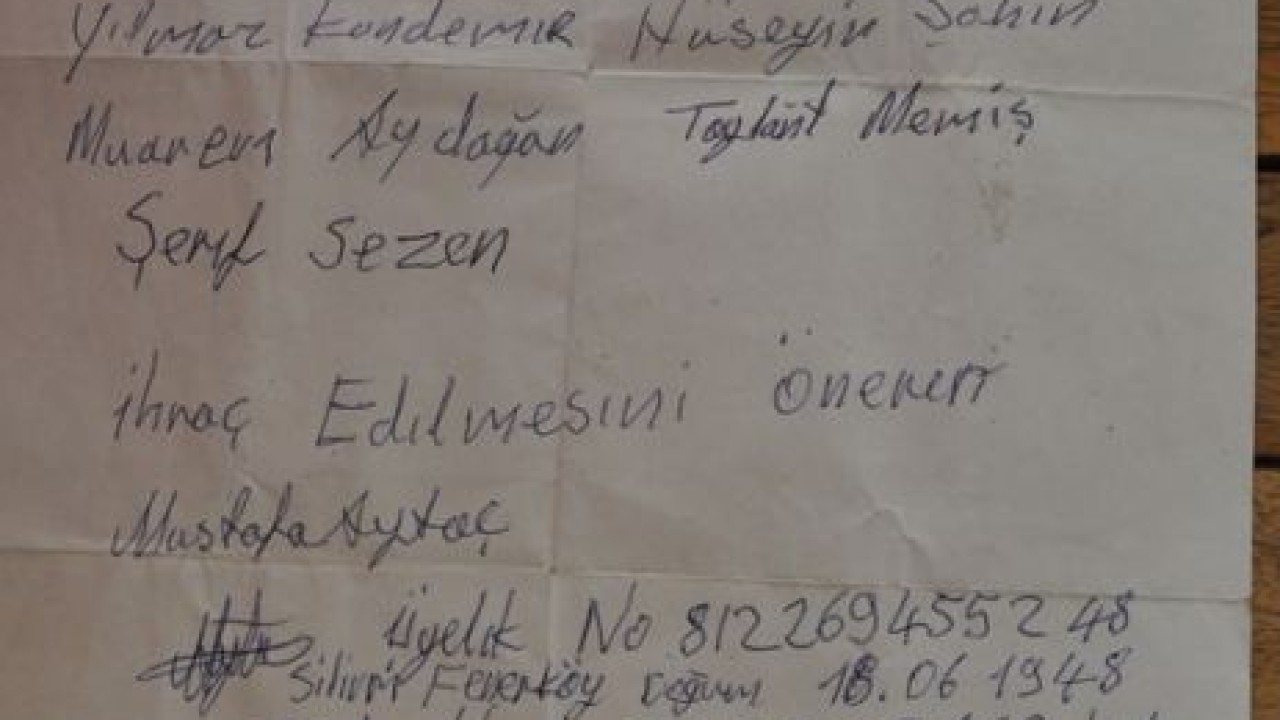 Yılmaz Kandemir Hüseyin Şahin
Muarem Aydoğan Taylant Memiş
Şerif Sezen
ihraç Edilmesini öneren
Mustafa Aytaç
üyelik No 812269455248
Silivri Fenerköy Doğum 18.06 1948